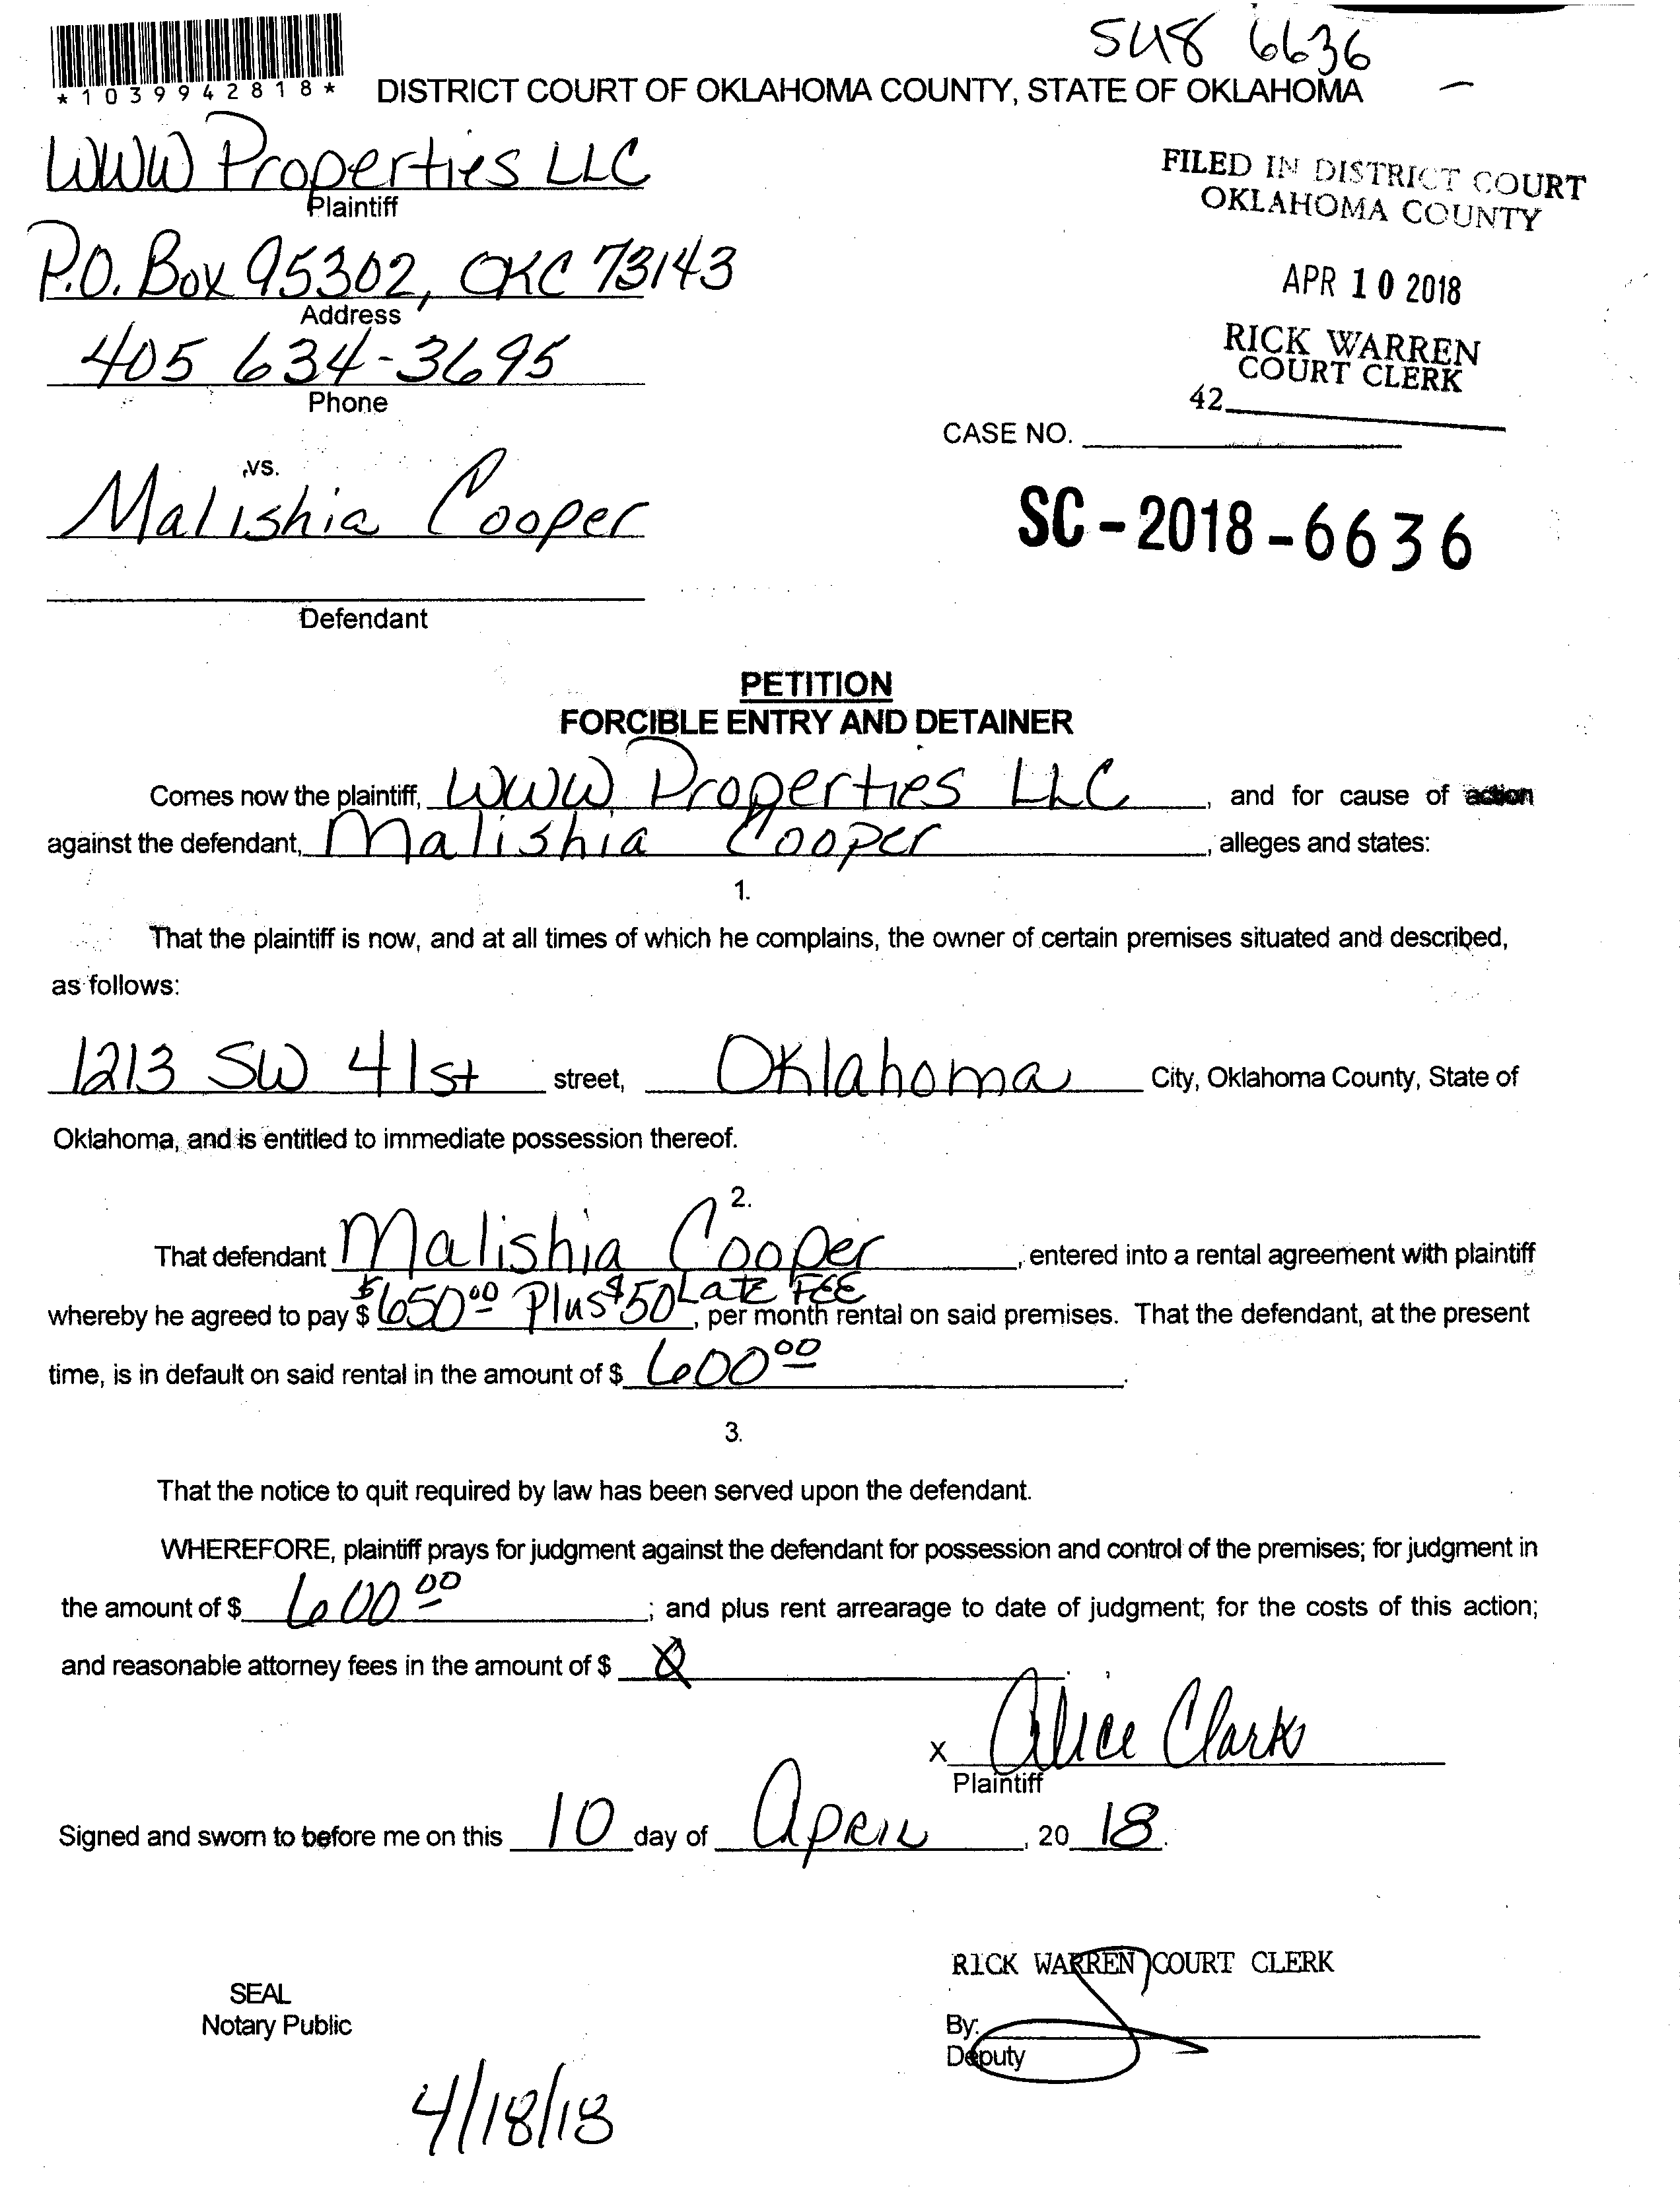 SC18 6636
*1039942818*
DISTRICT COURT OF OKLAHOMA COUNTY, STATE OF OKLAHOMA
WWW Properties LLC
Plaintiff
P.O. Box 95302, OKC 73143
Address
405 634-3695
Phone
FILED IN DISTRICT COURT
OKLAHOMA COUNTY
APR 10 2018
RICK WARREN
COURT CLERK
42
CASE NO.
SC-2018-6636
vs.
Malishia Cooper
Defendant
PETITION
FORCIBLE ENTRY AND DETAINER
Comes now the plaintiff, WWW Properties LLC, and for cause of action
against the defendant, Malishia Cooper, alleges and states:
1.
That the plaintiff is now, and at all times of which he complains, the owner of certain premises situated and described,
as follows:
1213 SW 41st street, Oklahoma City, Oklahoma County, State of
Oklahoma, and is entitled to immediate possession thereof.
2.
That defendant Malishia Cooper, entered into a rental agreement with plaintiff
whereby he agreed to pay $ $650.00 Plus $50 Late FEE, per month rental on said premises. That the defendant, at the present
time, is in default on said rental in the amount of $ 600.00.
3.
That the notice to quit required by law has been served upon the defendant.
WHEREFORE, plaintiff prays for judgment against the defendant for possession and control of the premises; for judgment in
the amount of $ 600.00; and plus rent arrearage to date of judgment; for the costs of this action;
and reasonable attorney fees in the amount of $
x Alice Clark
Plaintiff
Signed and sworn to before me on this 10 day of April, 2018.
RICK WARREN COURT CLERK
SEAL
Notary Public
By:
Deputy
4/18/18